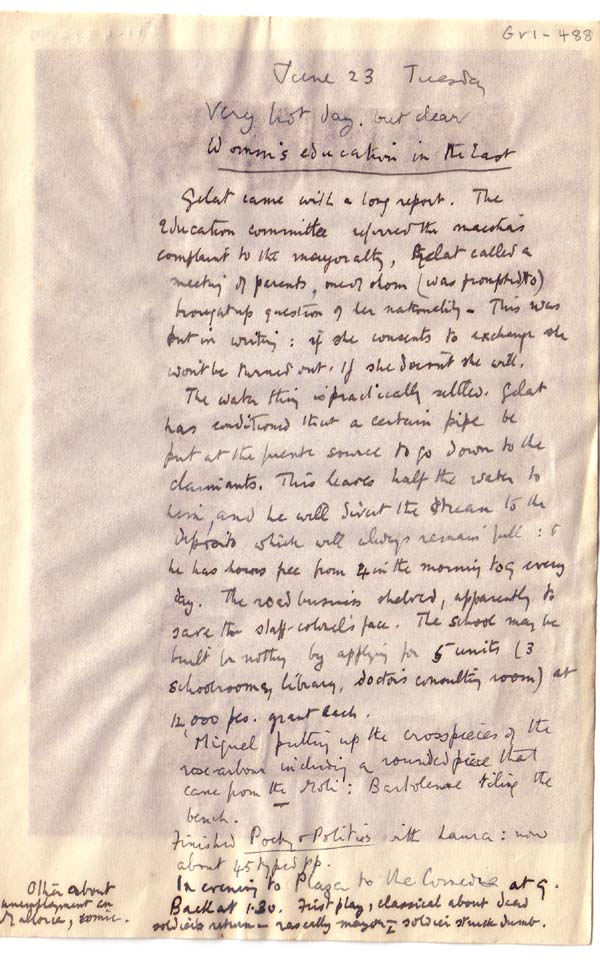 GV1-488
June 23 Tuesday
Very hot day. but clear
Women's education in the East
Gelat came with a long report. The
Education committee referred the maestra's
complaint to the mayoralty, Gelat called a
meeting of parents, one of whom (was prompted to)
brought up question of her nationality - This was
put in writing: if she consents to exchange she
won't be turned out. If she doesn't she will.
The water thing is practically settled. Gelat
has conditioned that a certain pipe be
put at the fuente source to go down to the
claimants. This leaves half the water to
him, and he will divert the stream to the
deposito which will always remain full: &
he has hours free from 4 in the morning to 9 every
day. The road business shelved, apparently to
save the staff-colonel's face. The school may be
built for nothing by applying for 5 units (3
schoolrooms, library, doctor's consulting room) at
12,000 pes. grant each.
Miguel putting up the crosspieces of the
rose-arbour including a rounded piece that
came from the Molí: Bartolome tiling the
bench.
Finished Poetry & Politics with Laura: now
about 45 typed pp.
In evening to Plaza to the Comedia at 9.
Back at 1.30. First play, classical about dead
soldier's return - rascally mayor - soldier struck dumb.
Other about
unemployment in
Mallorca, comic.